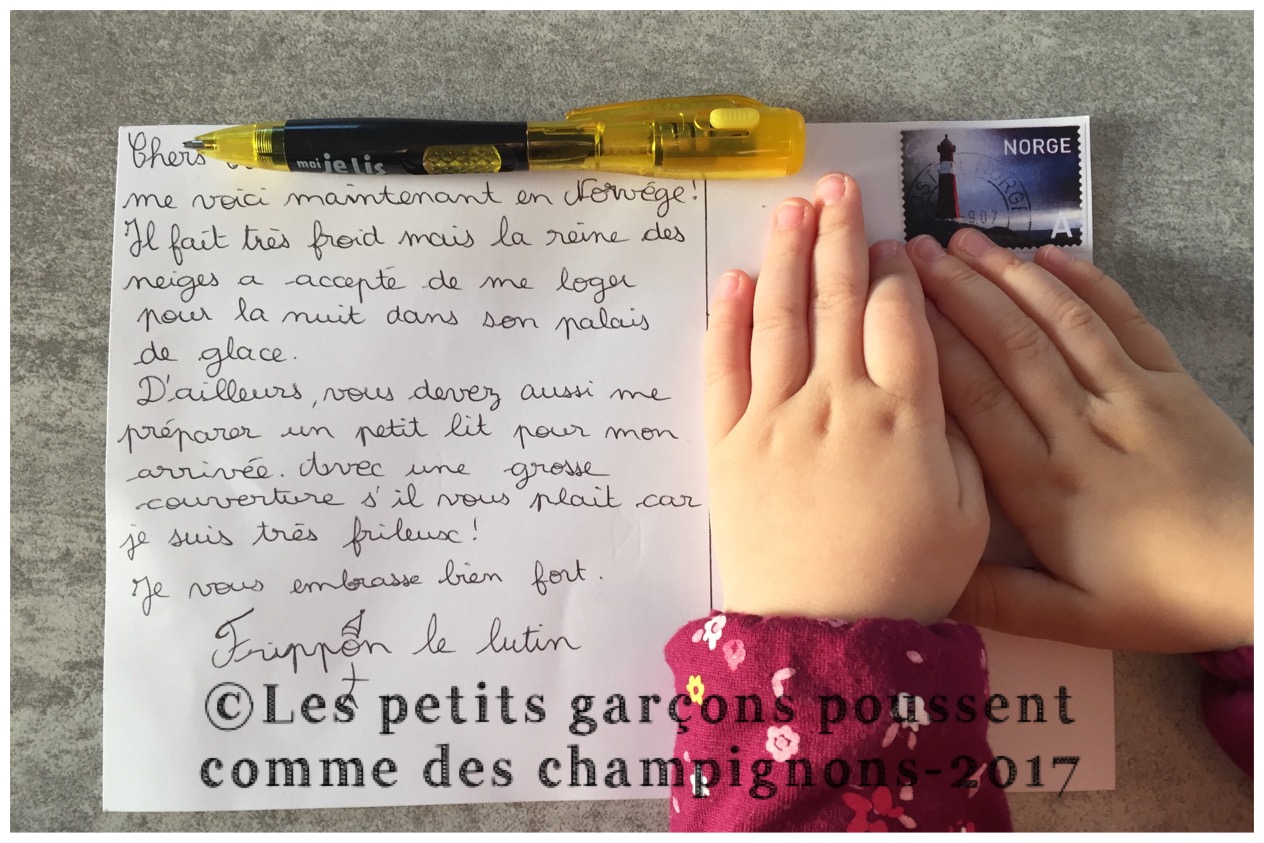 Chers
me voici maintenant en Norvége!
Il fait très froid mais la reine des
neiges a accepté de me loger
pour la nuit dans son palais
de glace.
D'ailleurs, vous devez aussi me
préparer un petit lit pour mon
arrivée. Avec une grosse
couverture s'il vous plait car
je suis trés frileux!
Je vous embrasse bien fort.
Frippon le lutin
moi je lis
NORGE
A
©Les petits garçons poussent
comme des champignons-2017